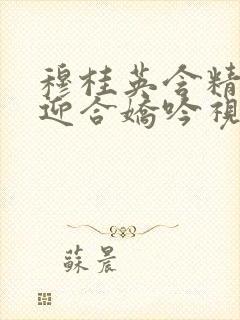 穆桂英含精
迎合嬌吟視
蘇晨